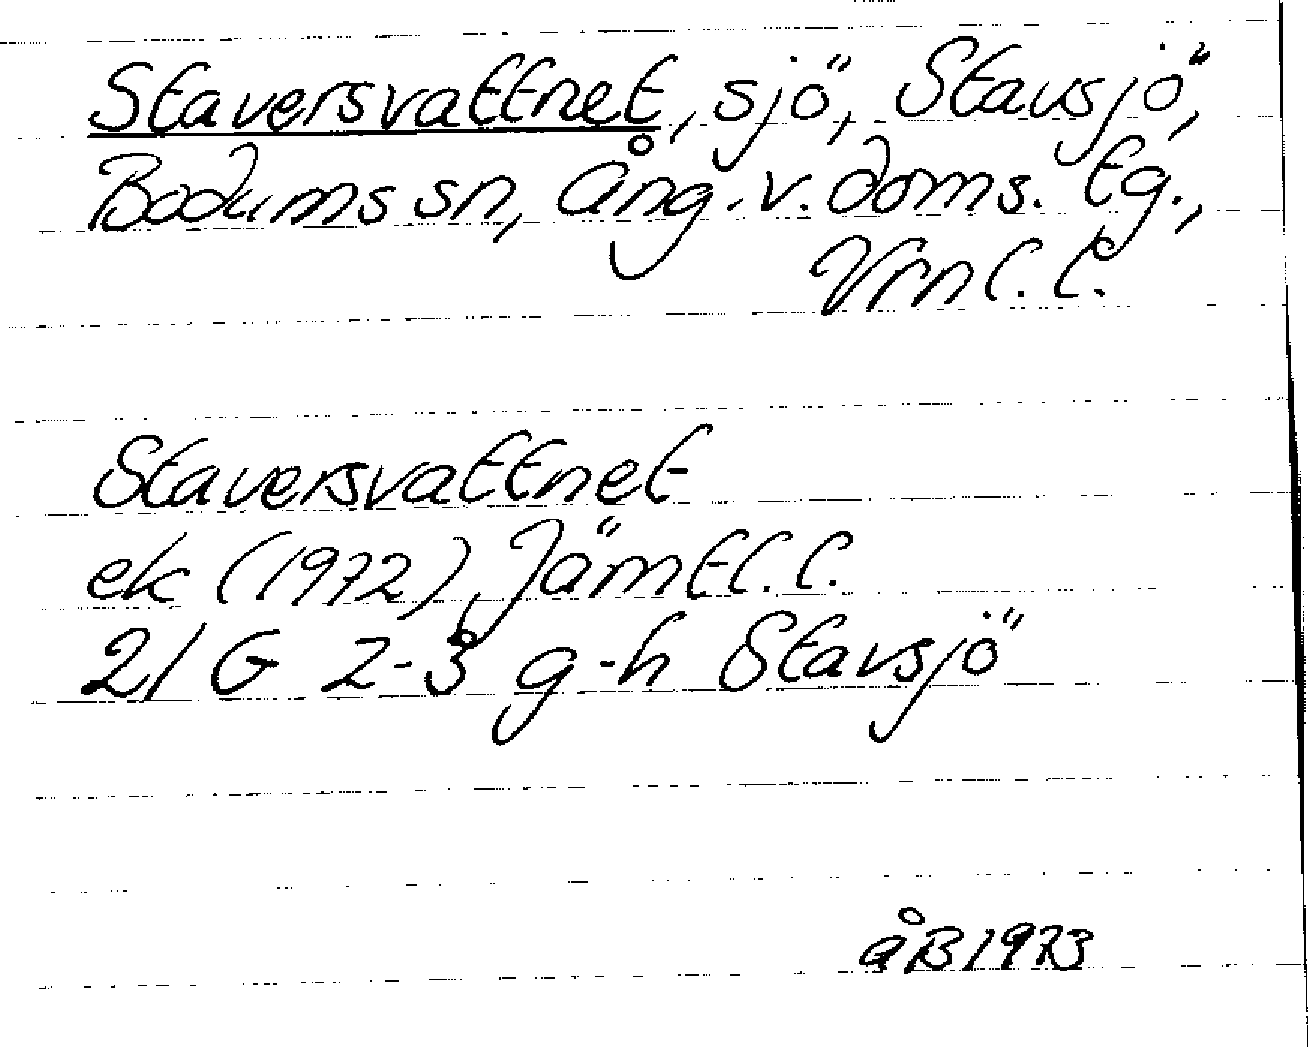 Staversvattnet, sjö, Stavsjö,
Bodums sn, Ång. v. doms. tg.,
Vrnl. l.
Staversvattnet
ek (1972), Jämtl. l.
21 G 2-3 g-h Stavsjö
åB 1973